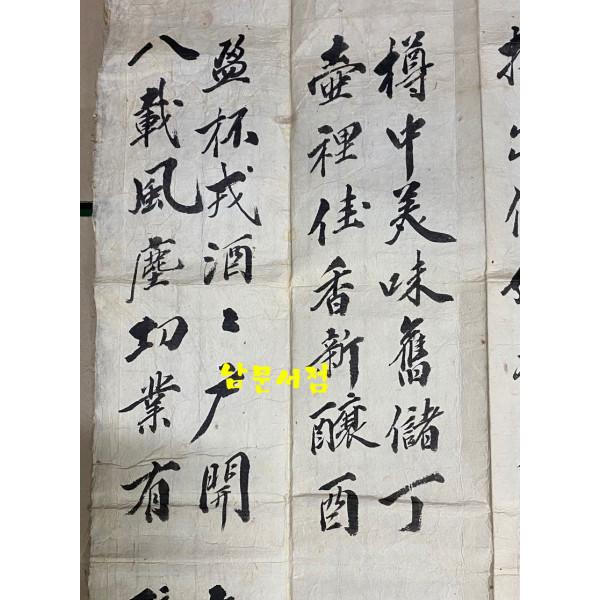 樽中美味舊儲丁
壺裡佳香新釀酉
盈杯戎酒 開
八載風塵功業有
남문서점